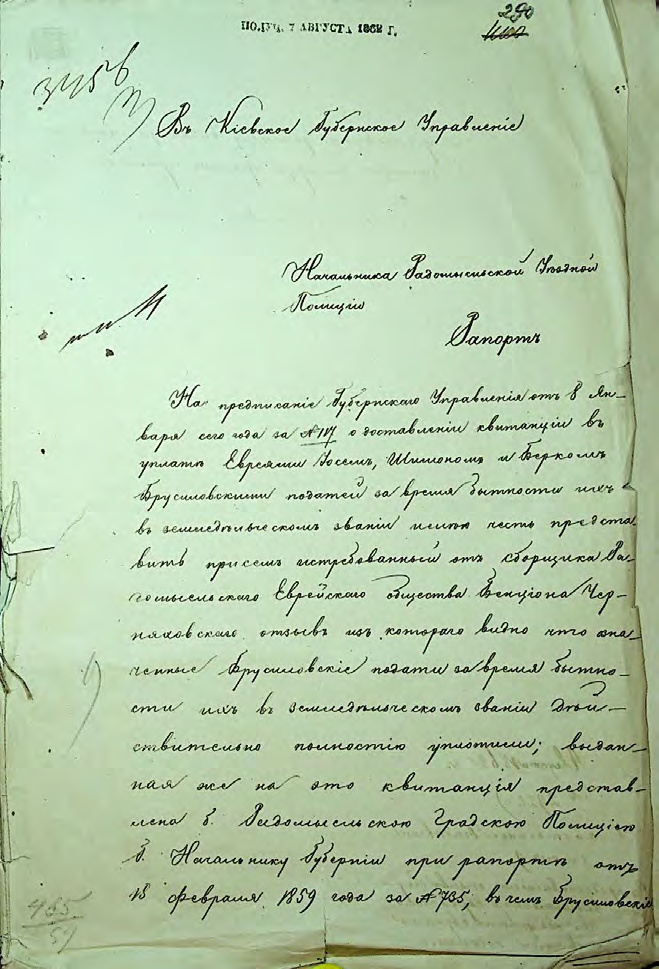 ПОЛУЧ. 7 АВГУСТА 1868 Г.
290
3456
Въ Кіевское Губернское Управленіе
Начальника Радомысльской Уѣздной
Полиціи
Рапортъ
На предписаніе Губернскаго Управленія отъ 8 Ян-
варя сего года за №117 о доставленіи квитанціи въ
уплатѣ Евреями Іосемъ, Шимономъ и Беркомъ
Брусиловскими податей за время бытности ихъ
въ земледѣльческомъ званіи имѣю честь предста-
вить при семъ истребованный отъ сборщика Ра-
домысльскаго Еврейскаго общества Бенціона Чер-
няховскаго отзывъ изъ котораго видно что озна-
ченные Брусиловскіе подати за время бытно-
сти ихъ въ земледѣльческомъ званіи дѣй-
ствительно полностію уплотили; выдан-
ная же на это квитанція представ-
лена б. Радомысльскою Градскою Полиціею
б. Начальнику Губерніи при рапортѣ отъ
18 Февраля 1859 года за №735, въ чемъ Брусиловскіе